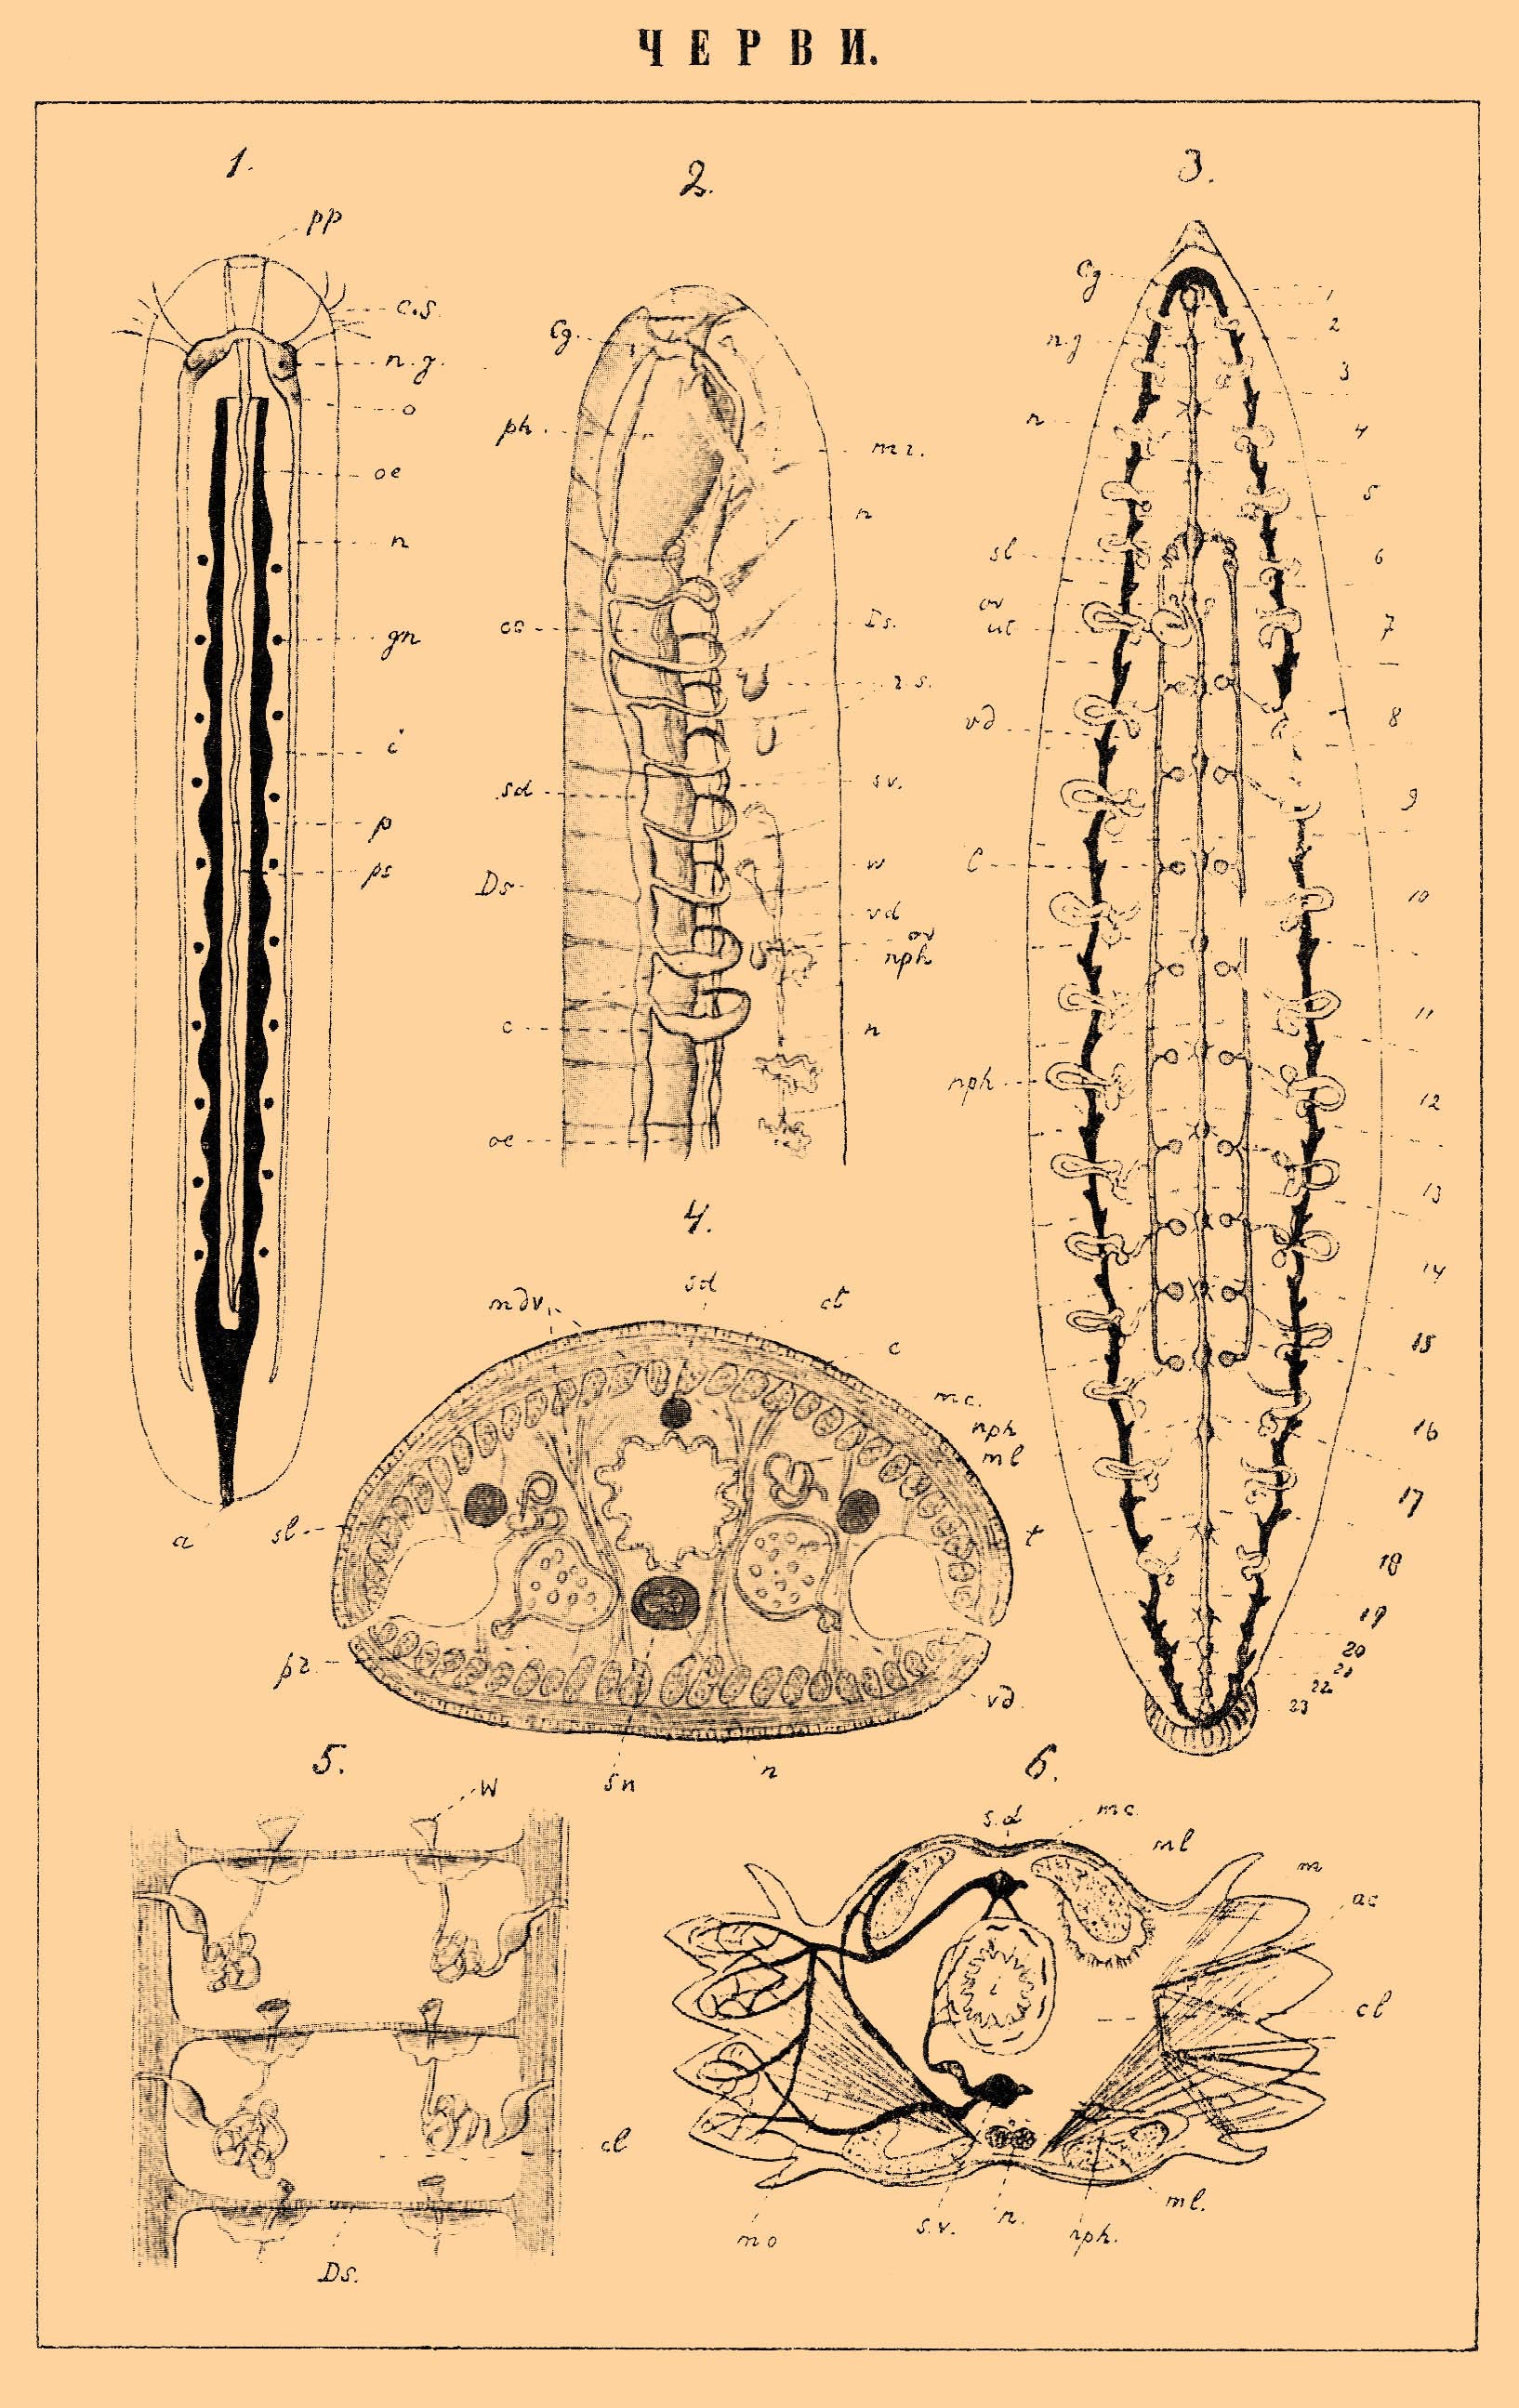 ЧЕРВИ.
1.
pp
c.s.
n.g.
o
oe
n
gn
i
p
ps
a
2.
Cg.
ph.
m r.
n
Ds.
r.s.
sd
sv.
Ds
w
vd
ov
nph
c
n
oe
3.
Cg
1
2
n.g
3
n
4
5
sl
6
ov
ut
7
vd
8
9
10
11
nph
12
13
14
15
16
17
18
19
20
21
22
23
4.
mdv.
sd
ct
c
mc.
nph
ml
sl
t
pr.
vd.
sn
n
5.
W
cl
Ds.
6.
s.d
mc
ml
m
ac
i
cl
mo
s.v.
n.
nph.
ml.